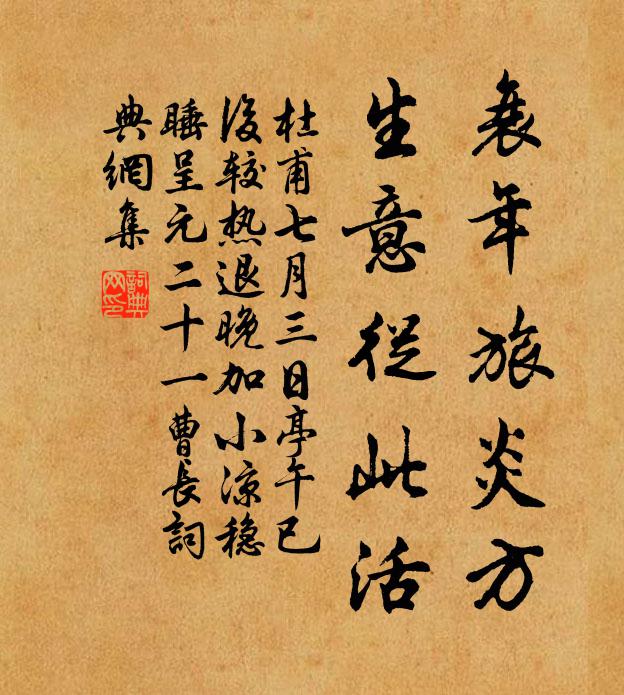 衰年旅炎方
生意從此活
杜甫七月三日亭午已
後較热退晚加小涼穩
睡呈元二十一曹長詞
典網集
詞典
网印